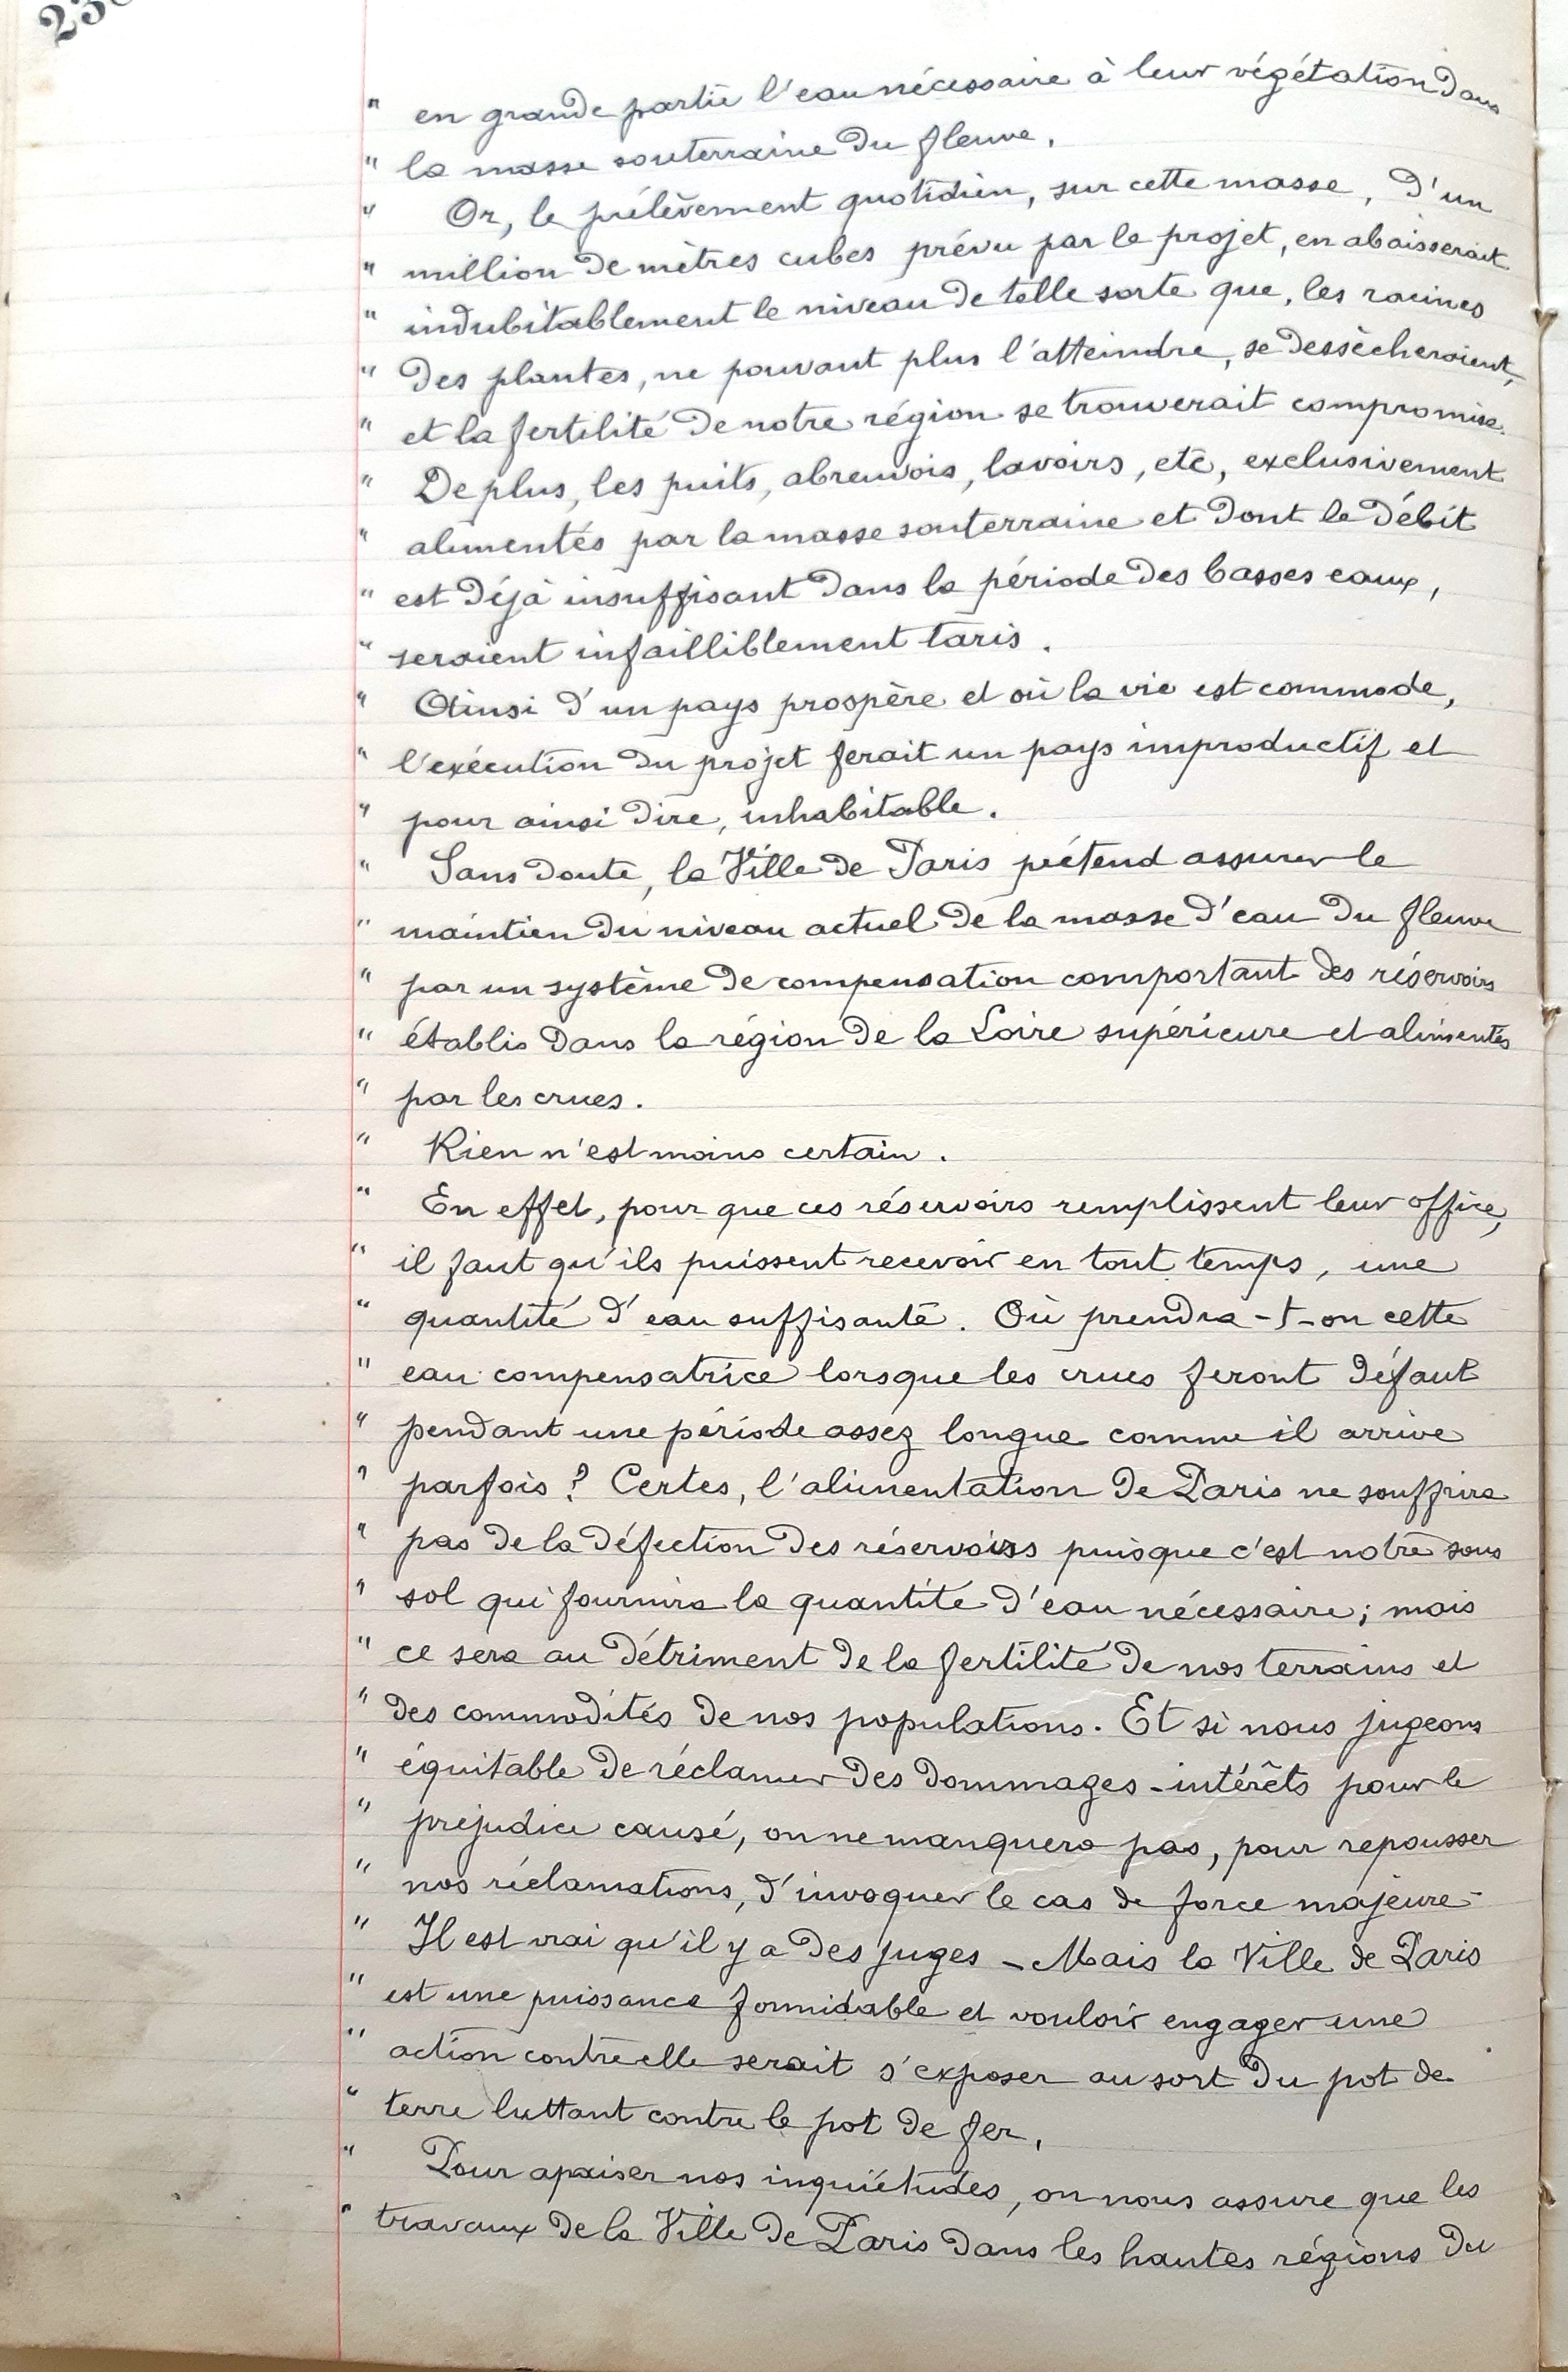 " en grande partie l'eau nécessaire à leur végétation dans
" la masse souterraine du fleuve.
" Or, le prélèvement quotidien, sur cette masse, d'un
" million de mètres cubes prévu par le projet, en abaisserait
" indubitablement le niveau de telle sorte que, les racines
" des plantes, ne pouvant plus l'atteindre, se dessècheraient,
" et la fertilité de notre région se trouverait compromise.
" De plus, les puits, abreuvois, lavoirs, etc, exclusivement
" alimentés par la masse souterraine et dont le débit
" est déjà insuffisant dans la période des basses eaux,
" seraient infailliblement taris.
" Ainsi d'un pays prospère et où la vie est commode,
" l'exécution du projet ferait un pays improductif et
" pour ainsi dire, inhabitable.
" Sans doute, la Ville de Paris prétend assurer le
" maintien du niveau actuel de la masse d'eau du fleuve
" par un système de compensation comportant des réservoirs
" établis dans la région de la Loire supérieure et alimentés
" par les crues.
" Rien n'est moins certain.
" En effet, pour que ces réservoirs remplissent leur office,
" il faut qu'ils puissent recevoir en tout temps, une
" quantité d'eau suffisante. Où prendra-t-on cette
" eau compensatrice lorsque les crues feront défaut
" pendant une période assez longue comme il arrive
" parfois ? Certes, l'alimentation de Paris ne souffrira
" pas de la défection des réservoirs puisque c'est notre sous
" sol qui fournira la quantité d'eau nécessaire; mais
" ce sera au détriment de la fertilité de nos terrains et
" des commodités de nos populations. Et si nous jugeons
" équitable de réclamer des dommages-intérêts pour le
" préjudice causé, on ne manquera pas, pour repousser
" nos réclamations, d'invoquer le cas de force majeure-
" Il est vrai qu'il y a des juges - Mais la Ville de Paris
" est une puissance formidable et vouloir engager une
" action contre elle serait s'exposer au sort du pot de
" terre luttant contre le pot de fer.
" Pour apaiser nos inquiétudes, on nous assure que les
" travaux de la Ville de Paris dans les hautes régions du